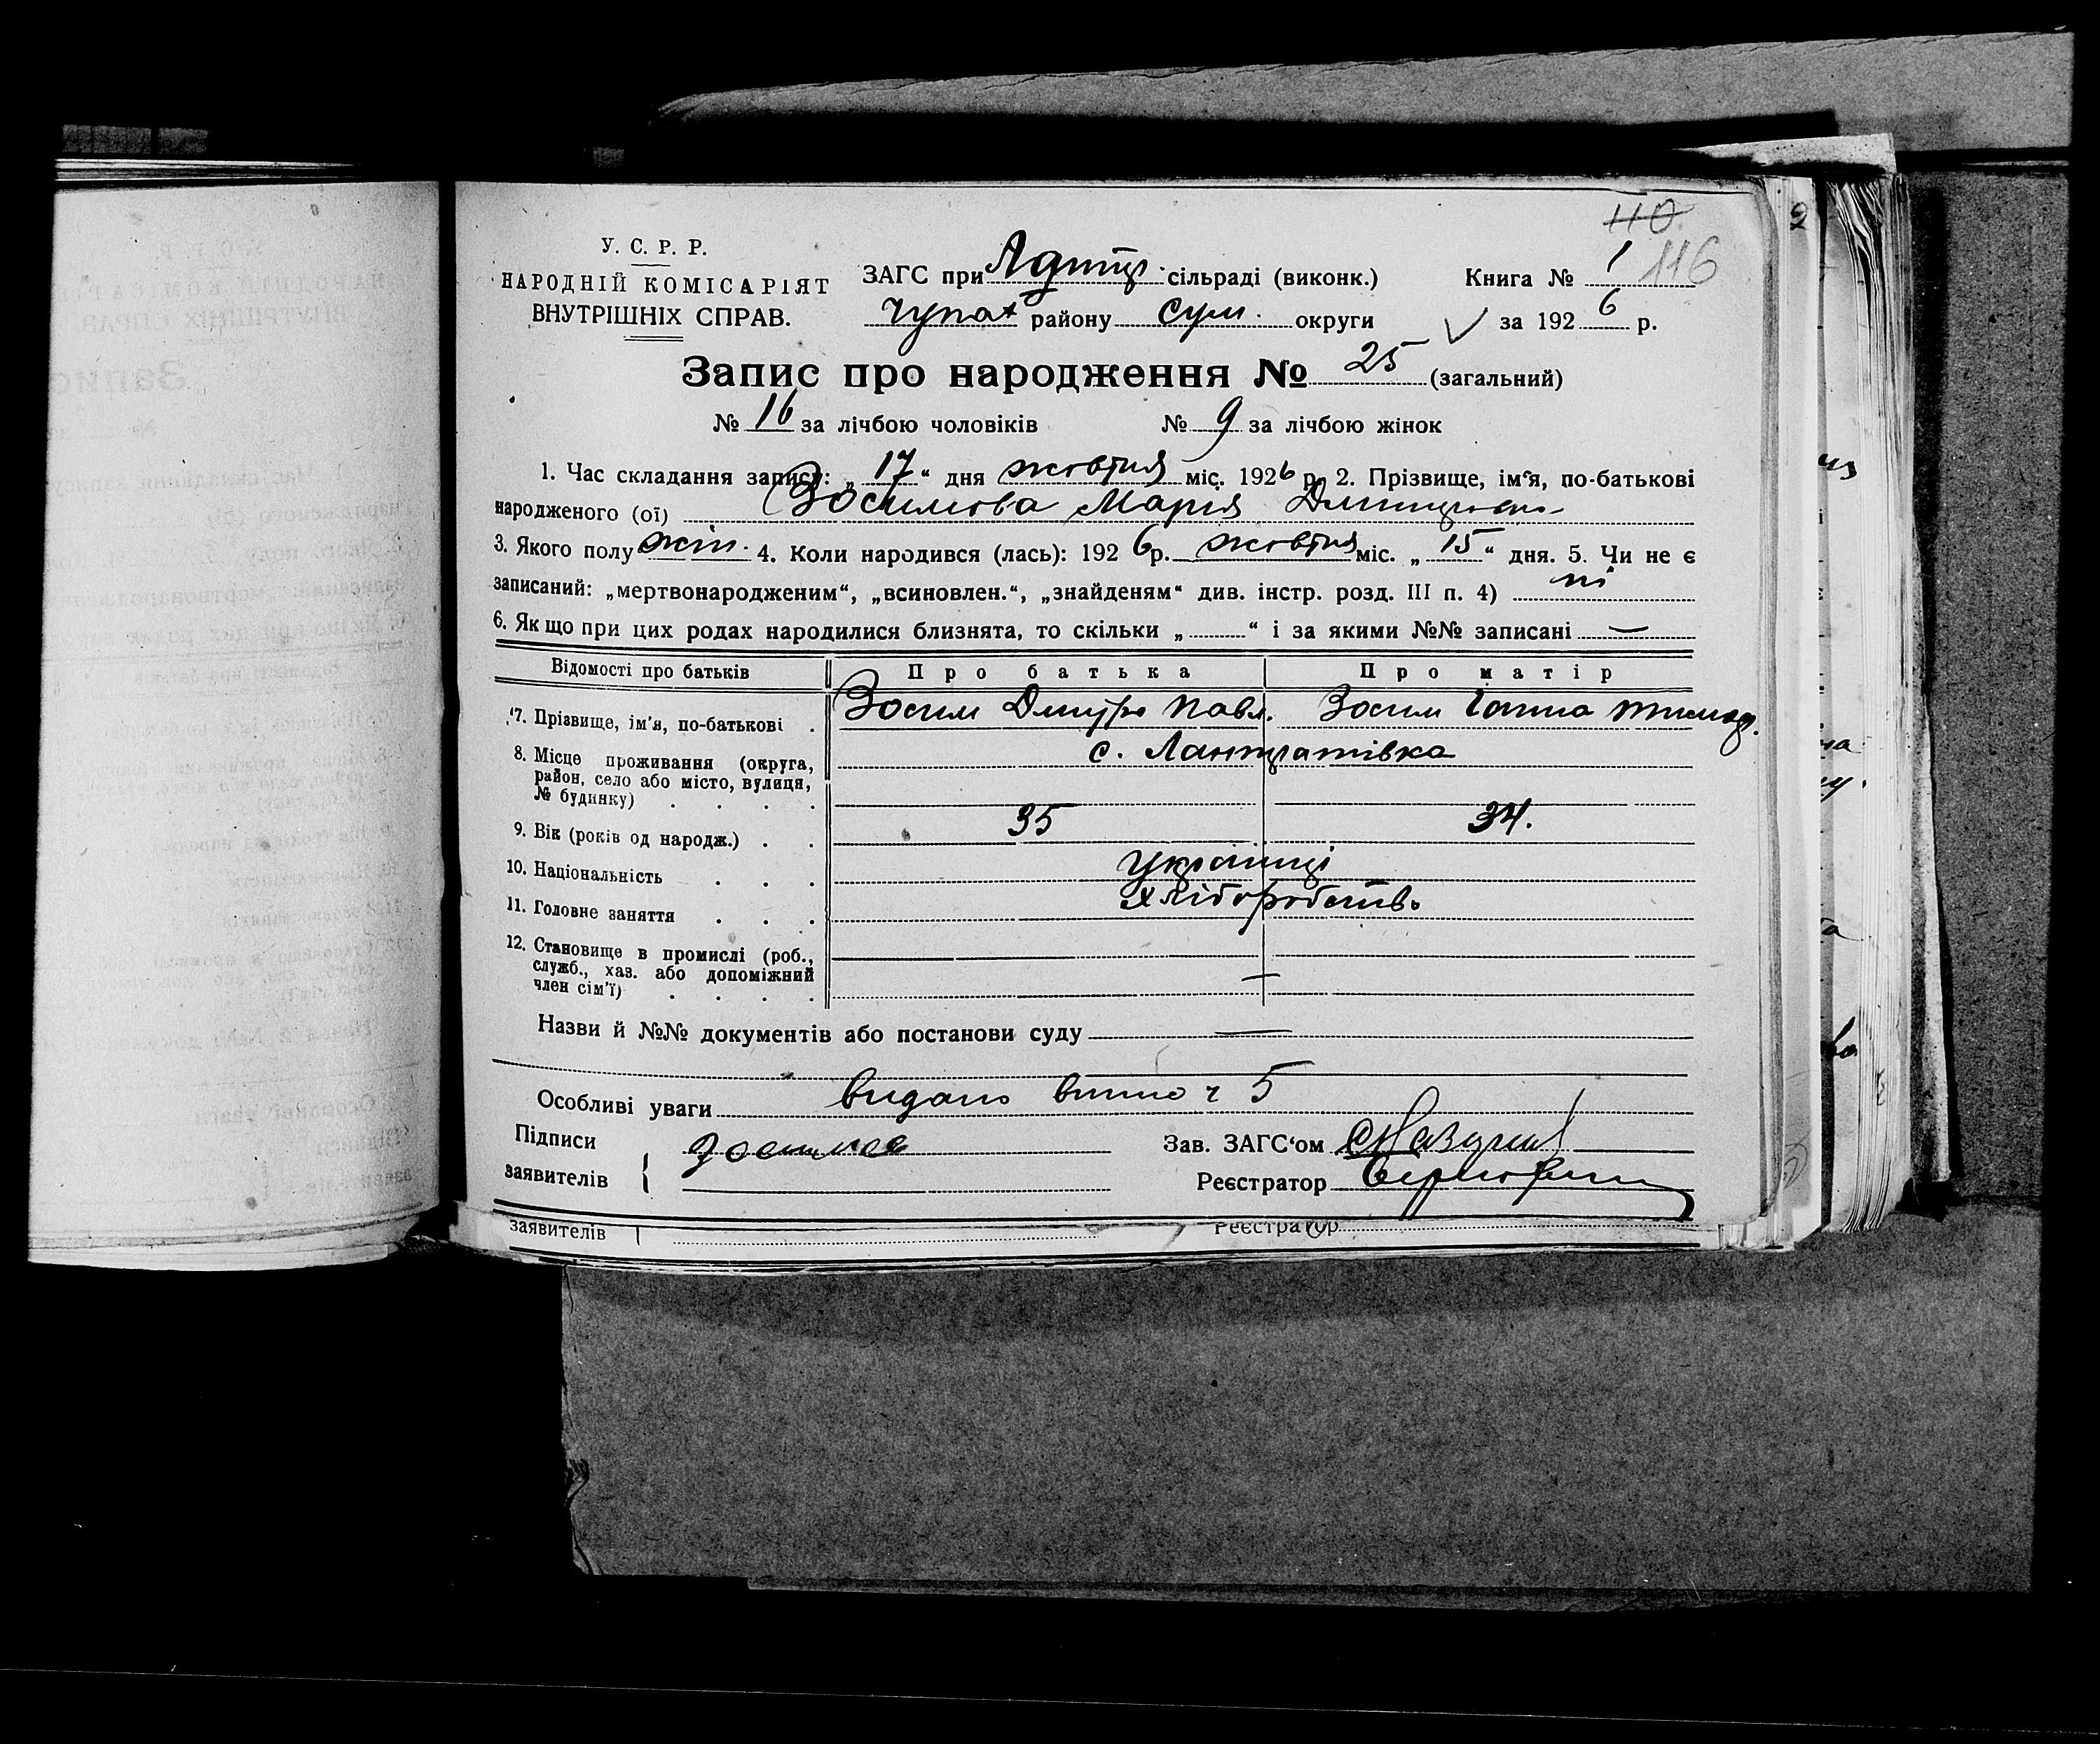 110.
116
У. С. Р. Р.
НАРОДНІЙ КОМІСАРІЯТ
ВНУТРІШНІХ СПРАВ.
ЗАГС при сільраді (виконк.)
Чупах району Сум. округи
Книга № 1
за 1926 р.
Запис про народження № 25 (загальний)
№ 16 за лічбою чоловіків № 9 за лічбою жінок
1. Час складання запису: „17“ дня жовтня міс. 1926 р. 2. Прізвище, ім‘я, по-батькові
народженого (ої) Зосимова Марія
3. Якого полу жін. 4. Коли народився (лась): 1926р. жовтня міс. „15“ дня. 5. Чи не є
записаний: „мертвонародженим“, „всиновлен.“, „знайденям“ див. інстр. розд. III п. 4) ні
6. Якщо при цих родах народилися близнята, то скільки „ “ і за якими №№ записані —
Відомості про батьків Про батька Про матір
7. Прізвище, ім'я, по-батькові . Зосим Дмитро Павл. Зосим Ганна
8. Місце проживання (округа,
район, село або місто, вулиця,
№ будинку) . . . .
с. Лантратівка
9. Вік (років од народж.) . . 35 34.
10. Національність . . . Українці
11. Головне заняття . . . Хліборобств.
12. Становище в промислі (роб.,
служб., хаз. або допоміжний
член сім'ї) . . . . —
Назви й №№ документів або постанови суду —
Особливі уваги видано 5
Підписи
заявителів { Зосимов
Зав. ЗАГС‘ом
Реєстратор
заявителів
Реєстратор